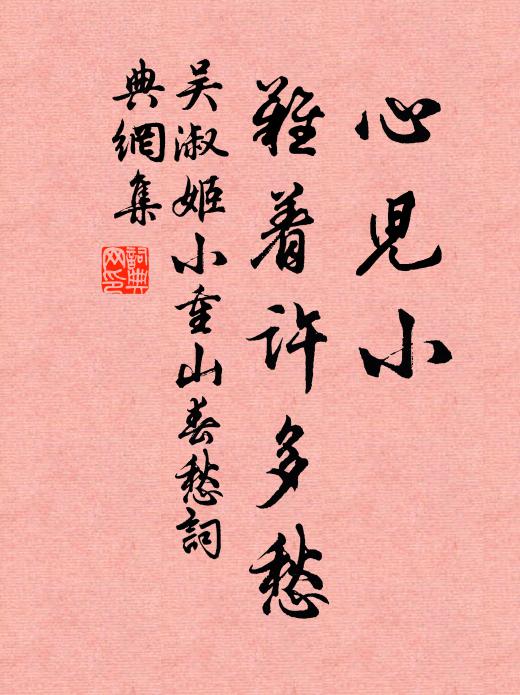 心児小
難着許多愁
吴淑姬小重山春愁詞
典網集
詞典
网印